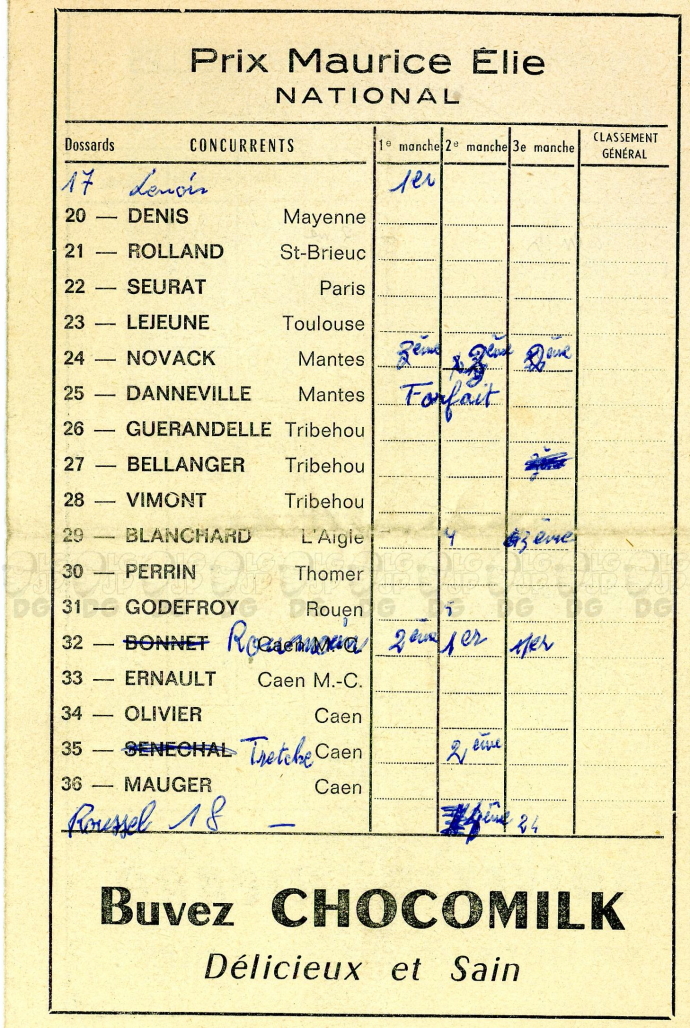 Prix Maurice Élie
NATIONAL
Dossards CONCURRENTS 1e manche 2e manche 3e manche CLASSEMENT GÉNÉRAL
17 Lenoir 1er
20 — DENIS Mayenne
21 — ROLLAND St-Brieuc
22 — SEURAT Paris
23 — LEJEUNE Toulouse
24 — NOVACK Mantes 3ème 3ème 2ème
25 — DANNEVILLE Mantes Forfait
26 — GUERANDELLE Tribehou
27 — BELLANGER Tribehou
28 — VIMONT Tribehou
29 — BLANCHARD L'Aigle 4 3ème
30 — PERRIN Thomer
31 — GODEFROY Rouen
32 — BONNET Caen M.-C. 2ème 1er 1er
33 — ERNAULT Caen M.-C.
34 — OLIVIER Caen
35 — SENECHAL Caen 2ème
36 — MAUGER Caen
Roussel 18 — 24
Buvez CHOCOMILK
Délicieux et Sain